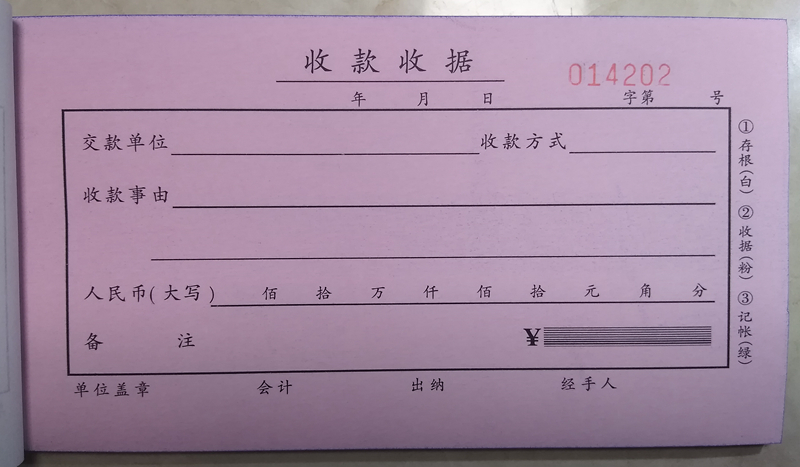 收款收据
014202
年 月 日 字第 号
交款单位 收款方式
收款事由
人民币(大写) 佰 拾 万 仟 佰 拾 元 角 分
备 注 ¥
单位盖章 会计 出纳 经手人
①存根(白) ②收据(粉) ③记帐(绿)